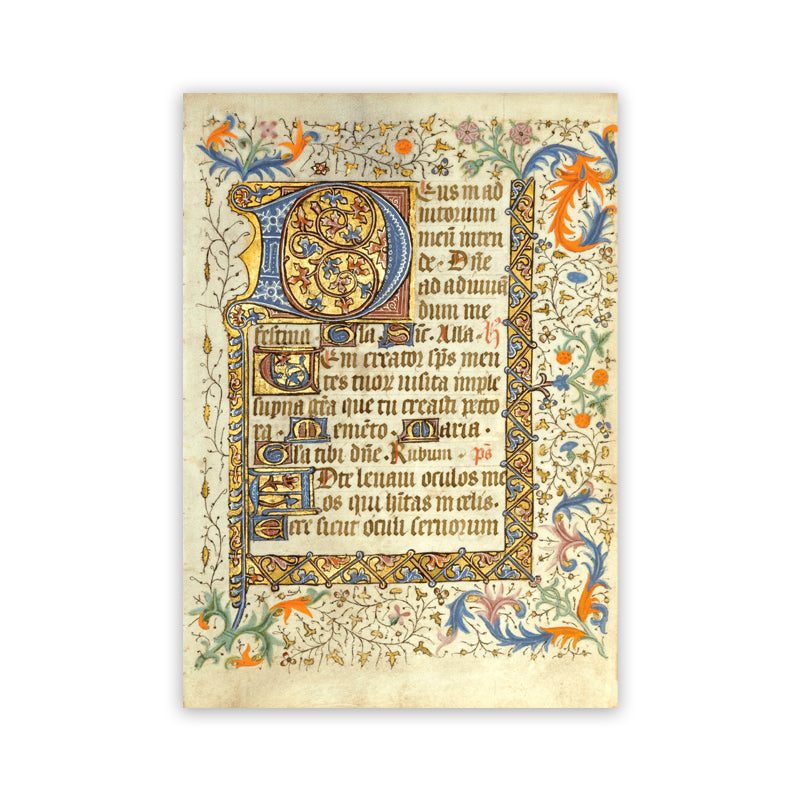 Deus in ad
iutorium
meū inten
de · Dn̄e
ad adiuuā
dum me
festina · Gl̄a · Sic̄ · Alla · H
Veni creator sp̄s men
tes tuor uisita imple
supna gr̄a que tu creasti pecto
ra · Memēto · Maria ·
Gl̄a tibi dn̄e · Rubum · ps̄
Ad te leuaui oculos me
os qui hītas in celis ·
Ecce sicut oculi seruorum